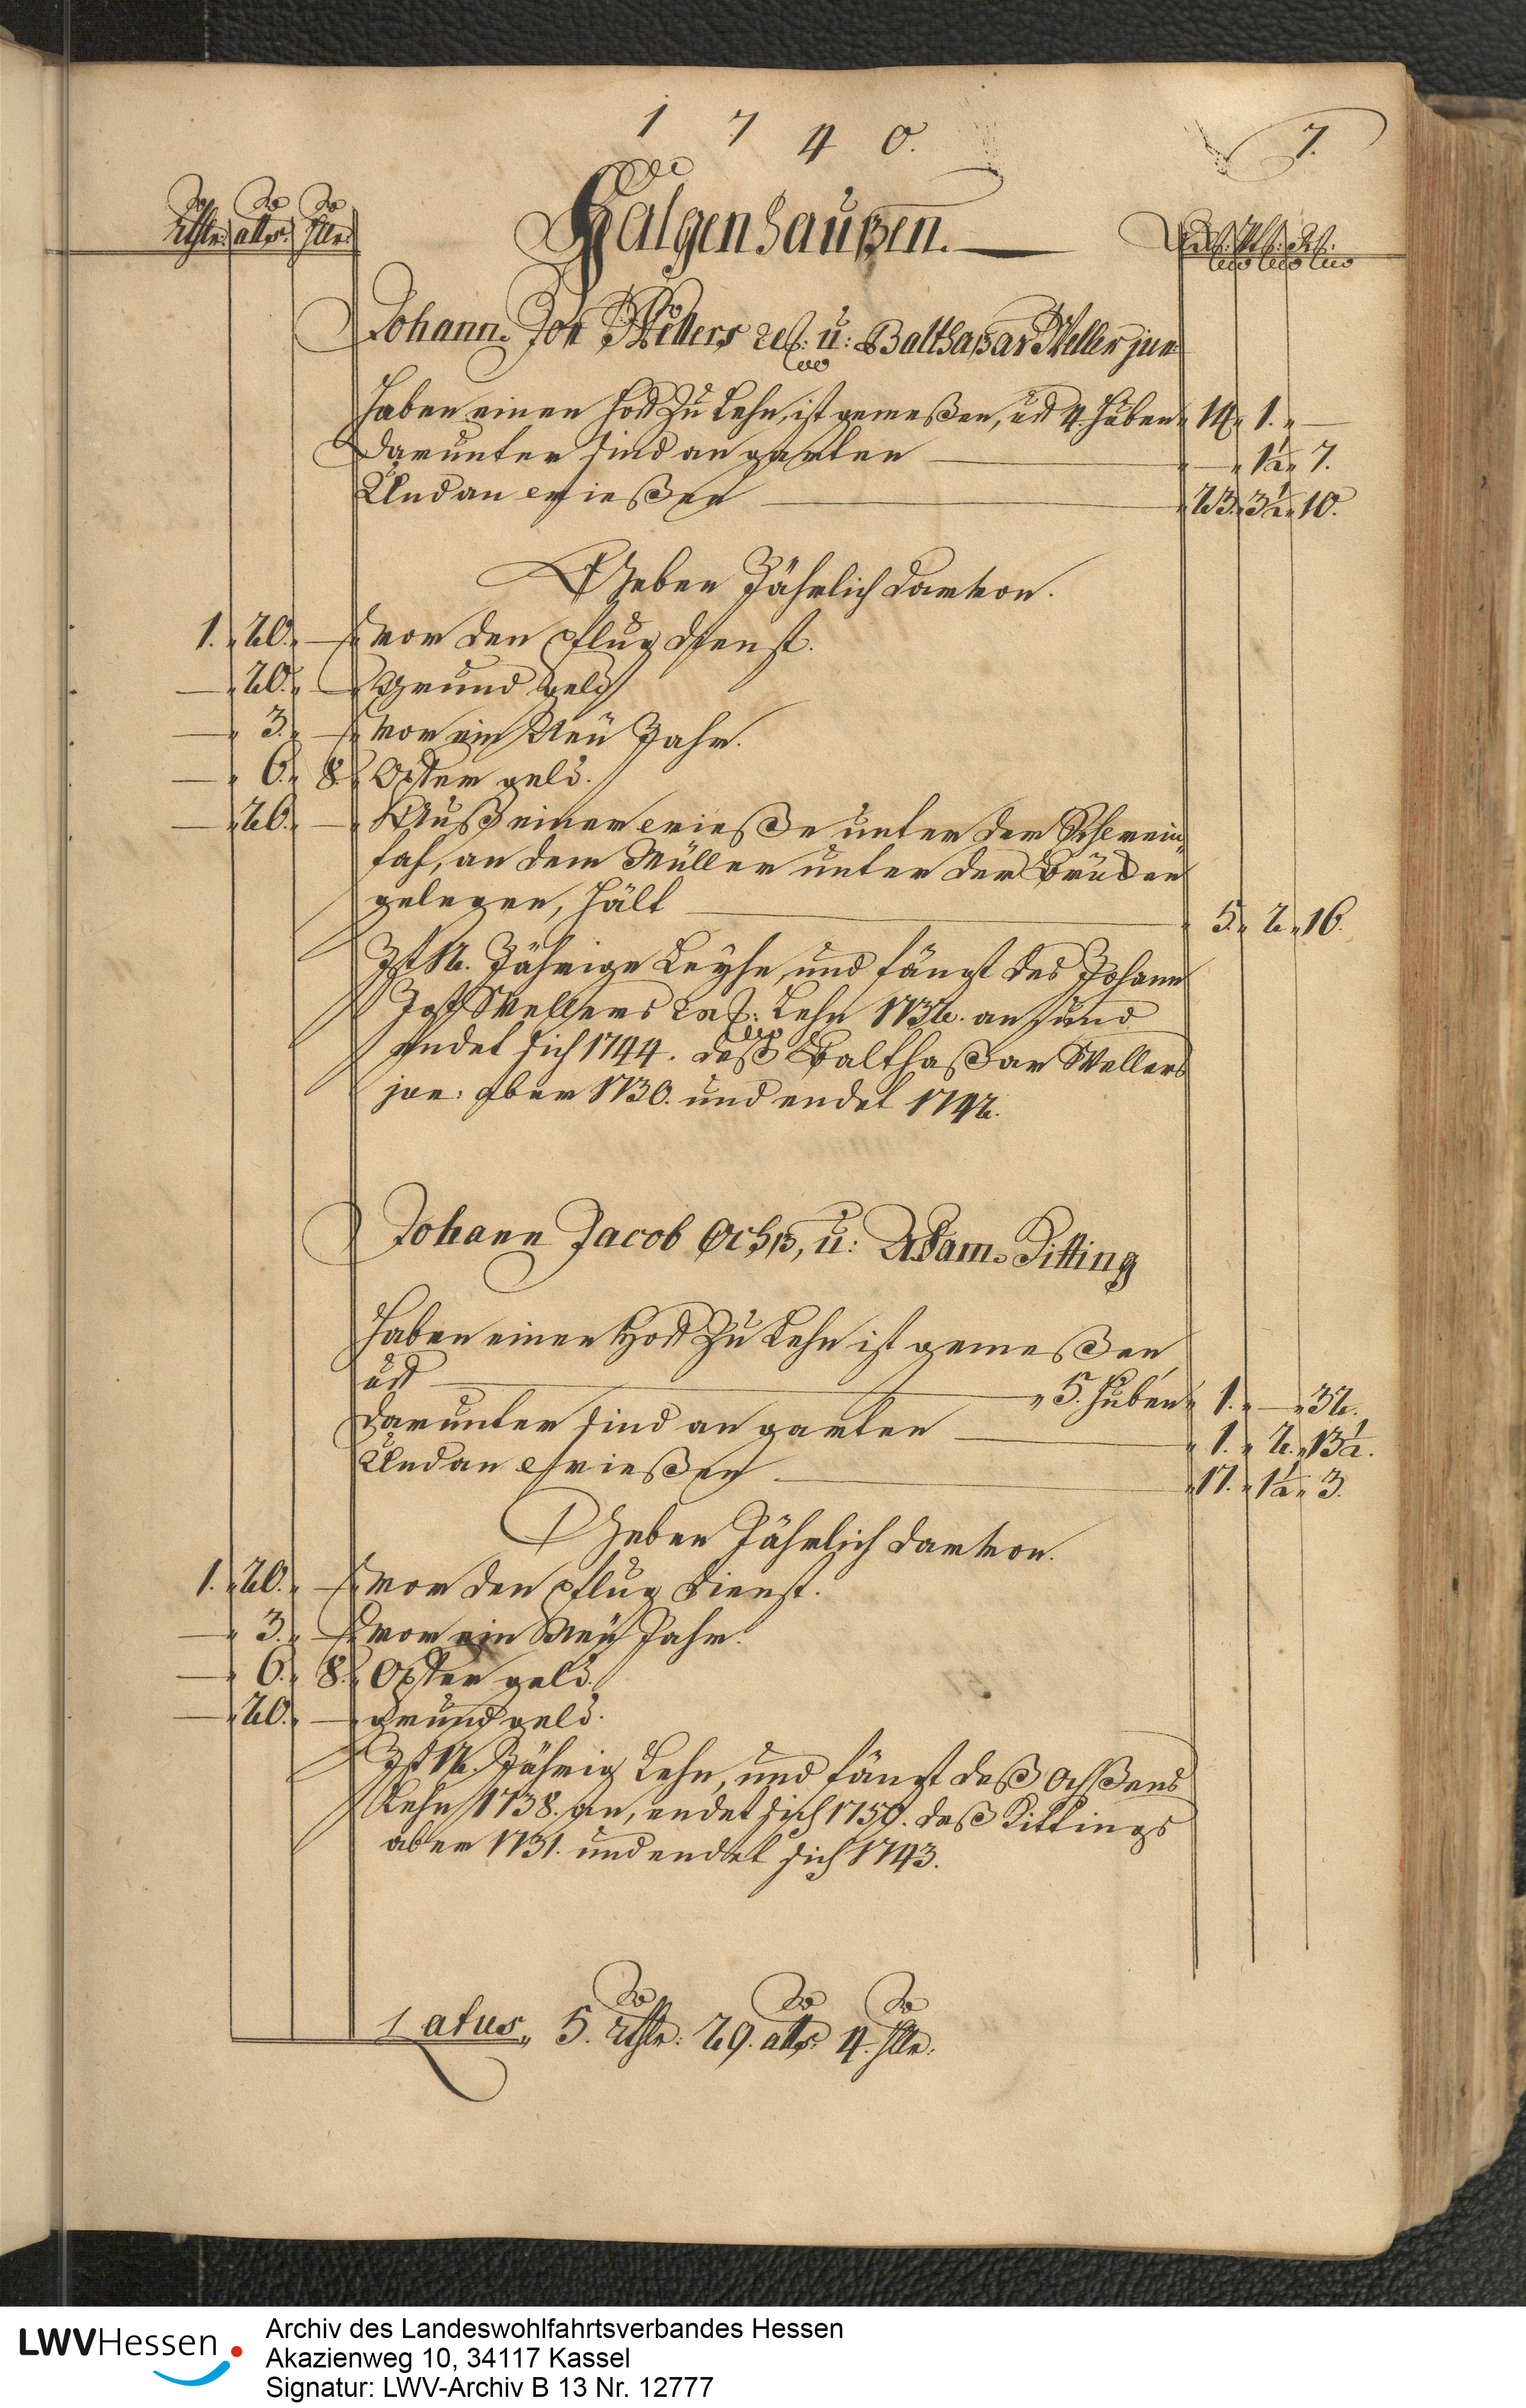 1740.
7.
Rthlr: albr: hllr:
Halgenhaußen.
Johann Jost Wellers rel: u: Balthasar Weller jun
Haben einen Hoff zu Lehn, ist gemeßen, uff 4. Huben 14 1. —
Darunter sind an garten — — 1½ 7.
Und an wießen — 23. 3½ 10.
Geben Jährlich darvon.
1. 20. — vor den pflug dienst.
— 20. — Grund geld
— 3. — vor ein Neü Jahr.
— 6. 8 Oster geld.
— 26. — Auß einer wieße unter der Schwein„
, an dem Müller unter der Brücken
gelegen, hält — 5. 2 16.
Ist 12. Jährige Leyhe, und fängt des Johann
Jost Wellers rel: Lehn 1732. an, und
endet sich 1744. deß Balthaßar Wellers
jun: aber 1730. und endet 1742.
Johann Jacob Ochß, u: Adam Kitting
Haben einen Hoff zu Lehn ist gemeßen,
uff — 5. Huben 1. — 32.
Darunter sind an garten — 1. 2. 13½.
Und an wießen — 17. 1½ 3.
Geben Jährlich darvon.
1. 20. — vor den pflug dienst.
— 3. — vor ein Neü Jahr.
— 6. 8. Oster geld.
— 20. — grund geld.
Ist 12. Jährig Lehn, und fängt deß Ochßens
Lehn 1738. an, endet sich 1750. deß Kittings
aber 1731. und endet sich 1743.
Latus 5. Rthlr: 29. albr: 4. hllr:
LWVHessen
Archiv des Landeswohlfahrtsverbandes Hessen
Akazienweg 10, 34117 Kassel
Signatur: LWV-Archiv B 13 Nr. 12777